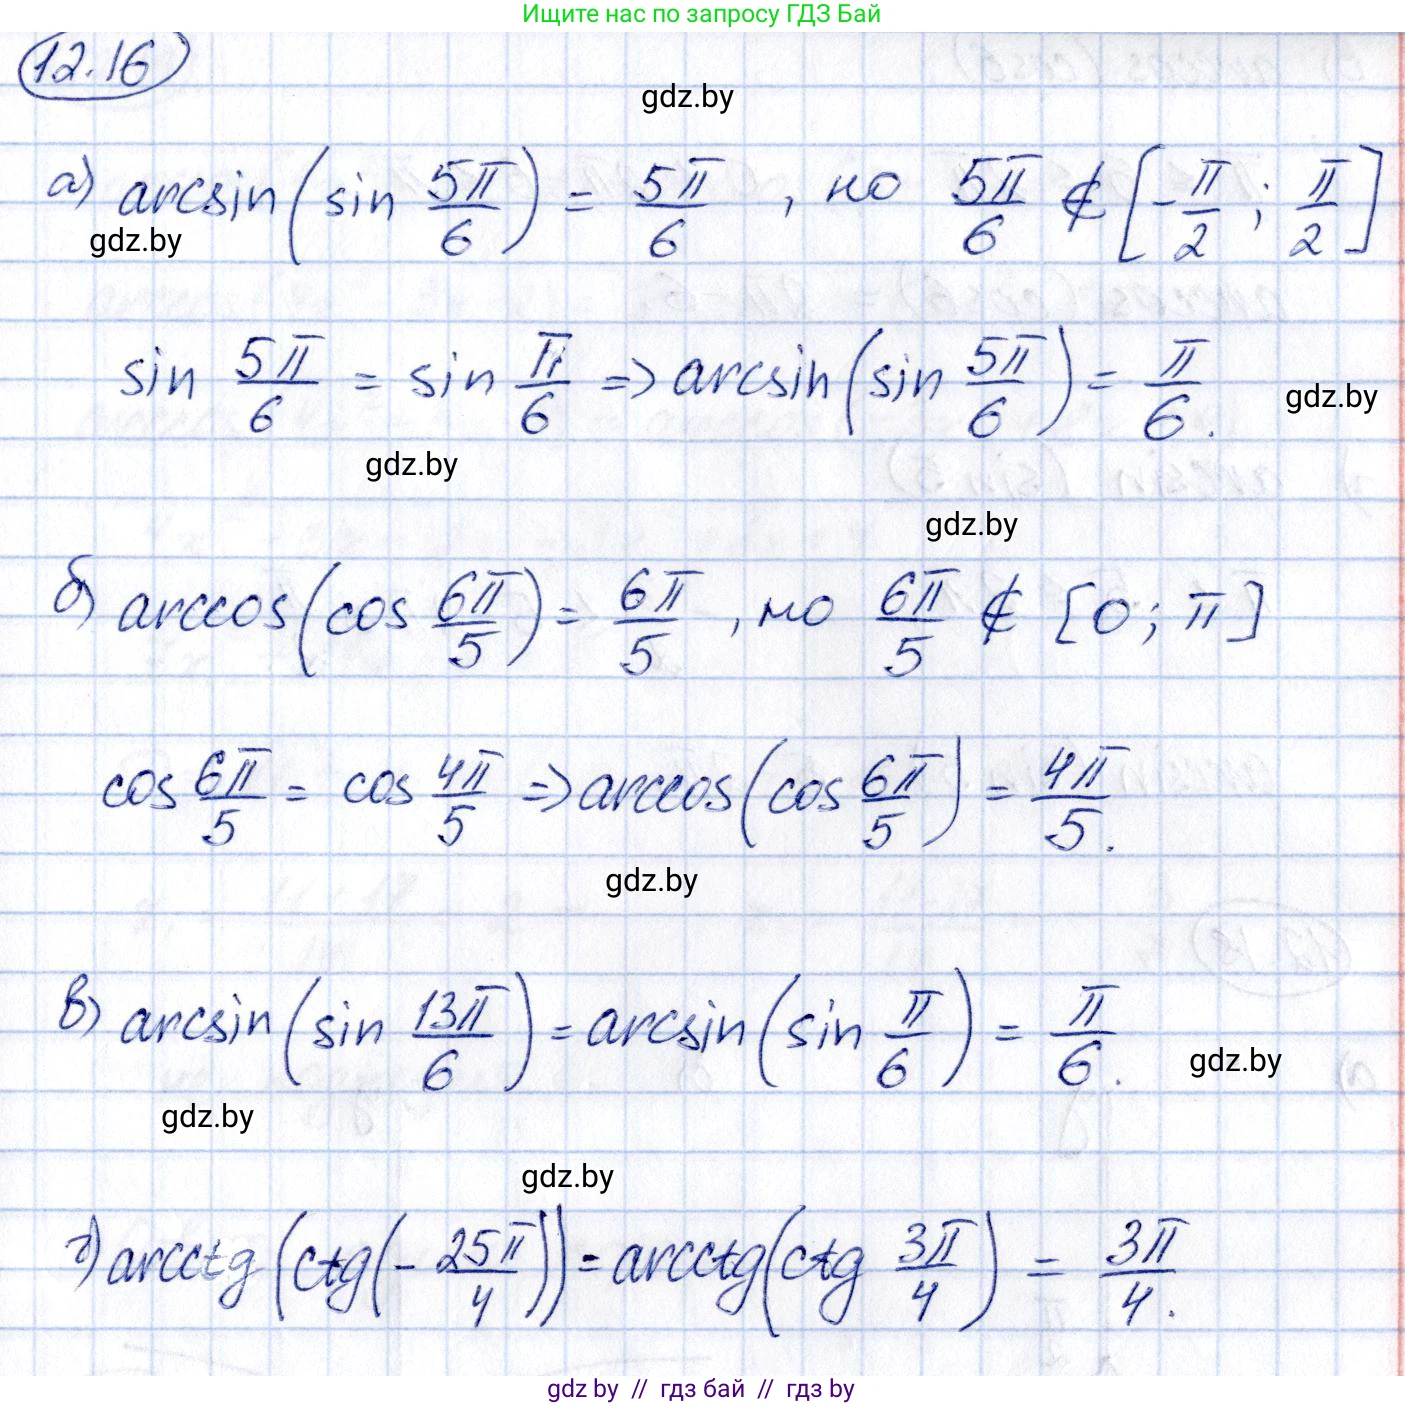 Ищите нас по запросу ГДЗ Бай
12.16
gdz.by
а) arcsin(sin 5π/6) = 5π/6 , но 5π/6 ∉ [-π/2; π/2]
gdz.by
sin 5π/6 = sin π/6 => arcsin(sin 5π/6) = π/6.
gdz.by
gdz.by
gdz.by
б) arccos(cos 6π/5) = 6π/5 , но 6π/5 ∉ [0; π]
cos 6π/5 = cos 4π/5 => arccos(cos 6π/5) = 4π/5.
gdz.by
в) arcsin(sin 13π/6) = arcsin(sin π/6) = π/6.
gdz.by
gdz.by
gdz.by
г) arcctg(ctg(-25π/4)) = arcctg(ctg 3π/4) = 3π/4.
gdz by // гдз бай // гдз by